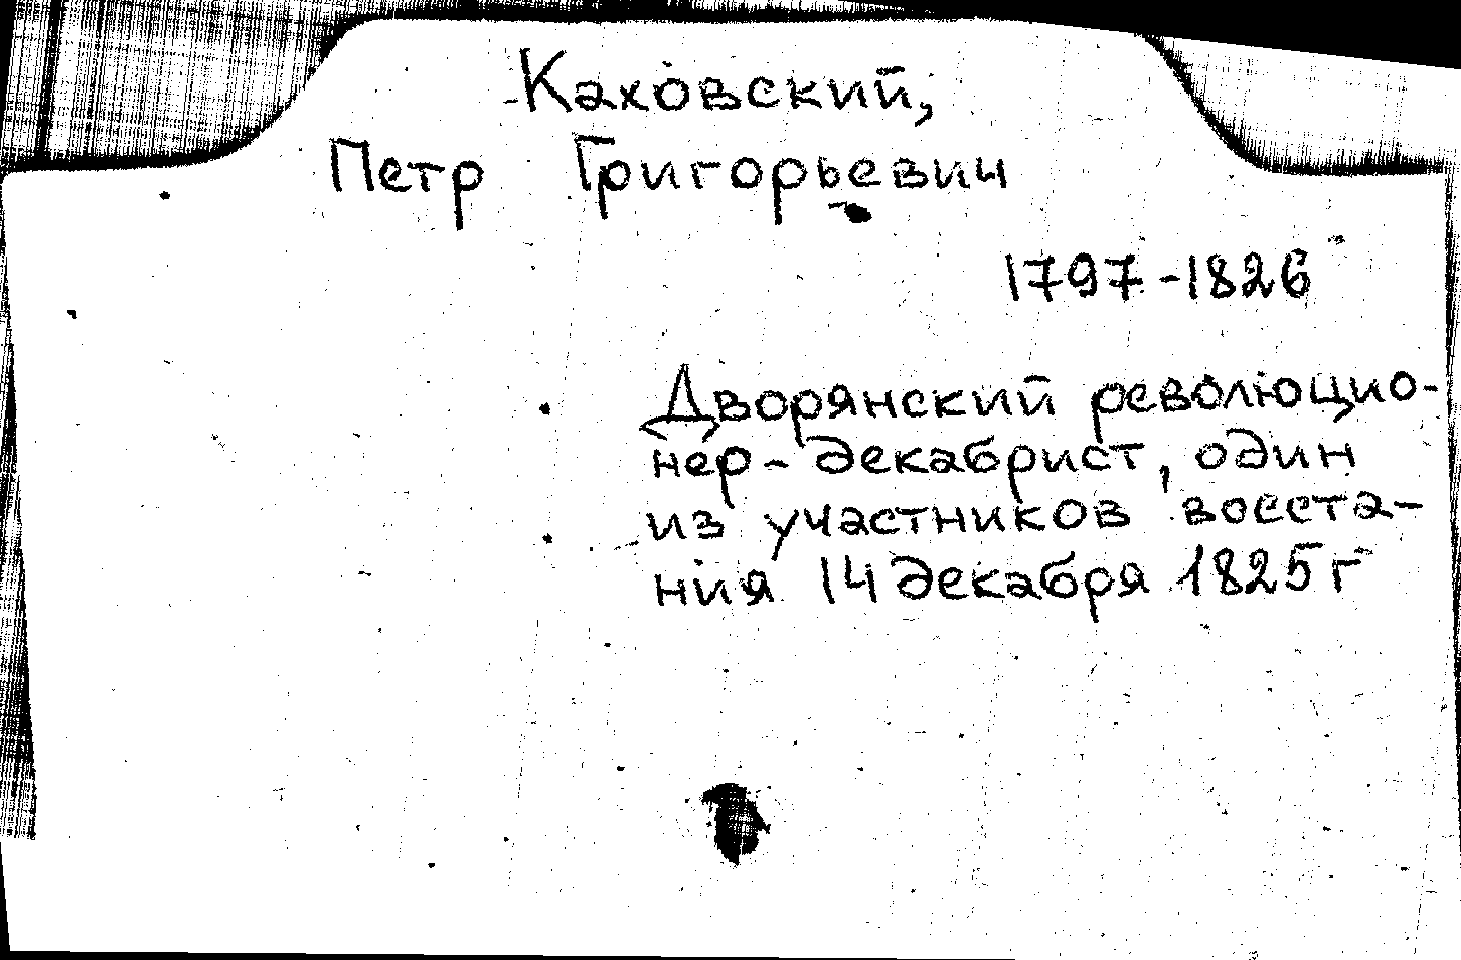 Каховский,
Петр Григорьевич
1797-1826
Дворянский революцио-
нер-декабрист, один
из участников восста-
ния 14 декабря 1825 г